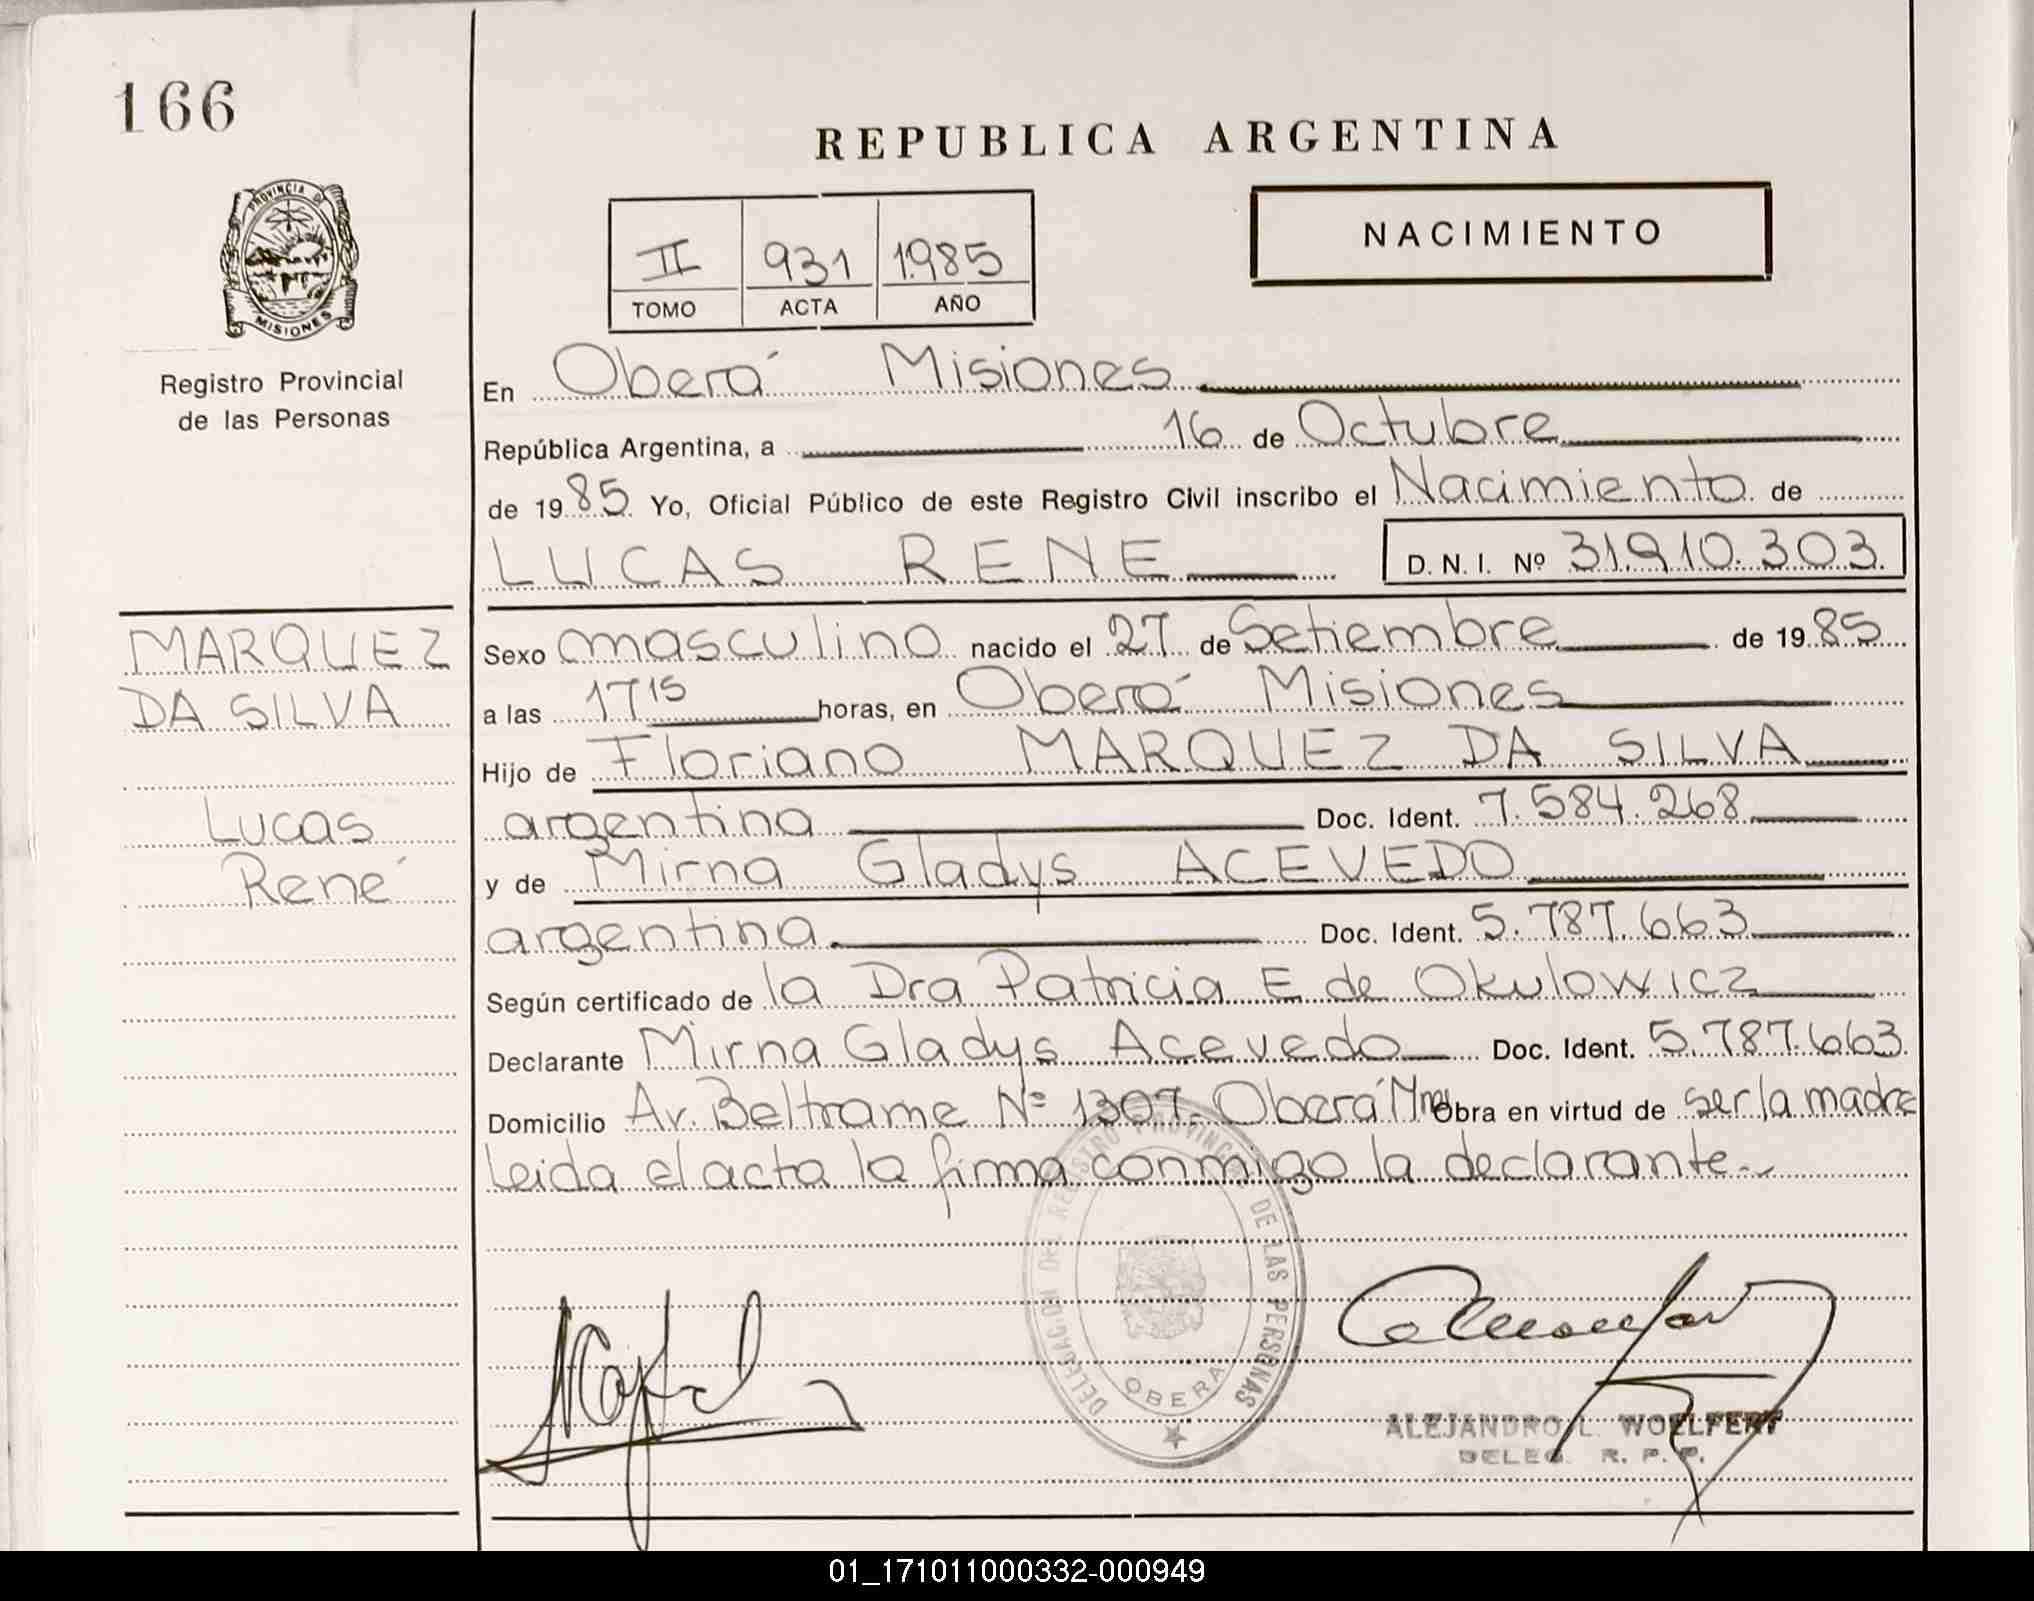 166
REPUBLICA ARGENTINA
PROVINCIA DE
MISIONES
Registro Provincial
de las Personas
II 931 1985
TOMO ACTA AÑO
NACIMIENTO
En Oberá Misiones
República Argentina, a 16 de Octubre
de 1985 Yo, Oficial Público de este Registro Civil inscribo el Nacimiento de
LUCAS RENE D. N. I. Nº 31.910.303
MARQUEZ
DA SILVA
Lucas
René
Sexo masculino nacido el 27 de Setiembre de 1985
a las 17 15 horas, en Oberá Misiones
Hijo de Floriano MARQUEZ DA SILVA
argentina Doc. Ident. 7.584.268
y de Mirna Gladys ACEVEDO
argentina Doc. Ident. 5.787.663
Según certificado de la Dra Patricia E de Okulowicz
Declarante Mirna Gladys Acevedo Doc. Ident. 5.787.663
Domicilio Av. Beltrame Nº 1307- Oberá Mnes Obra en virtud de ser la madre
Leida el acta la firma conmigo la declarante.-
DELEGACION DEL REGISTRO PROVINCIAL DE LAS PERSONAS
OBERA
ALEJANDRO L. WOELFERT
DELEG. R. P. P.
01_171011000332-000949